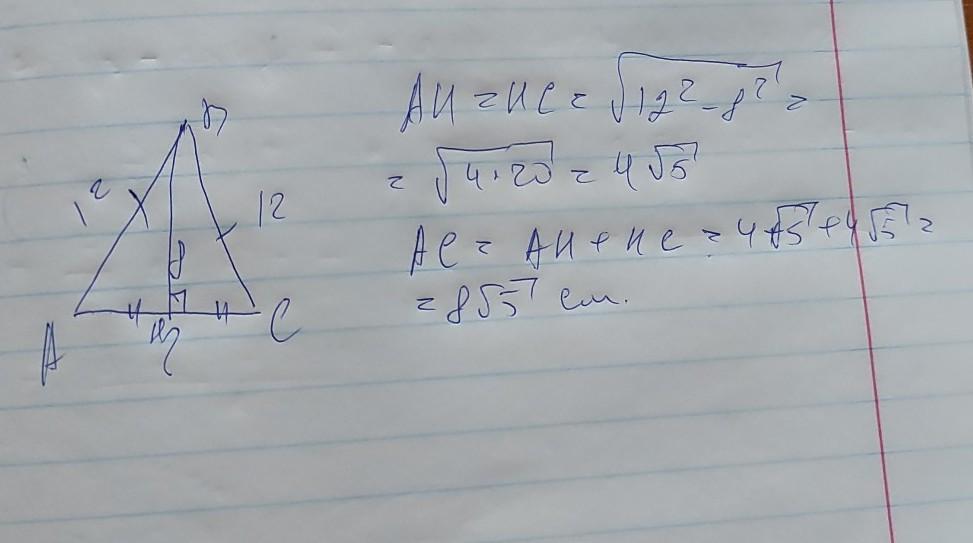 B
12
12
8
A
H
C
AH = HC = √12² - 8² =
= √4·20 = 4√5
AC = AH + HC = 4√5 + 4√5 =
= 8√5 см.